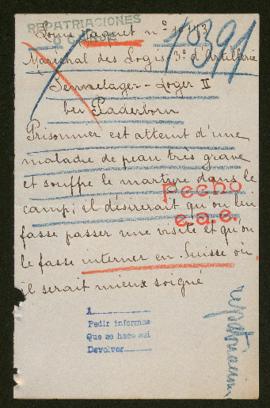 REPATRIACIONES
Louis Jaquit n°
Maréchal des Logis 3e d'Artillerie
Sennelager - Lager II
bei Paderborn
Prisonnier est atteint d'une
maladie de peau très grave
et souffre le martyre dans le
camp; il désirerait qu'on lui
fasse passer une visite et qu'on
le fasse interner en Suisse où
il serait mieux soigné
Fecho
A
Pedir informes
Que se hace así
Devolver